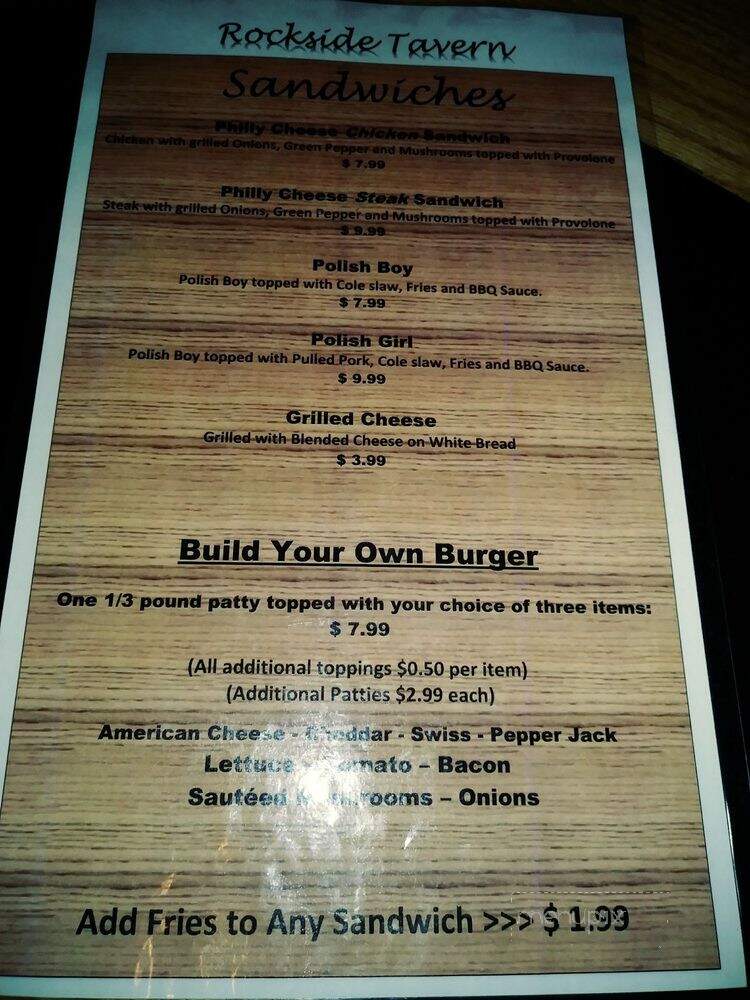 Rockside Tavern
Sandwiches
Philly Cheese Chicken Sandwich
Chicken with grilled Onions, Green Pepper and Mushrooms topped with Provolone
$ 7.99
Philly Cheese Steak Sandwich
Steak with grilled Onions, Green Pepper and Mushrooms topped with Provolone
$ 9.99
Polish Boy
Polish Boy topped with Cole slaw, Fries and BBQ Sauce.
$ 7.99
Polish Girl
Polish Boy topped with Pulled Pork, Cole slaw, Fries and BBQ Sauce.
$ 9.99
Grilled Cheese
Grilled with Blended Cheese on White Bread
$ 3.99
Build Your Own Burger
One 1/3 pound patty topped with your choice of three items:
$ 7.99
(All additional toppings $0.50 per item)
(Additional Patties $2.99 each)
American Cheese - Cheddar - Swiss - Pepper Jack
Lettuce - Tomato – Bacon
Sautéed Mushrooms – Onions
Add Fries to Any Sandwich >>> $ 1.99
menupix